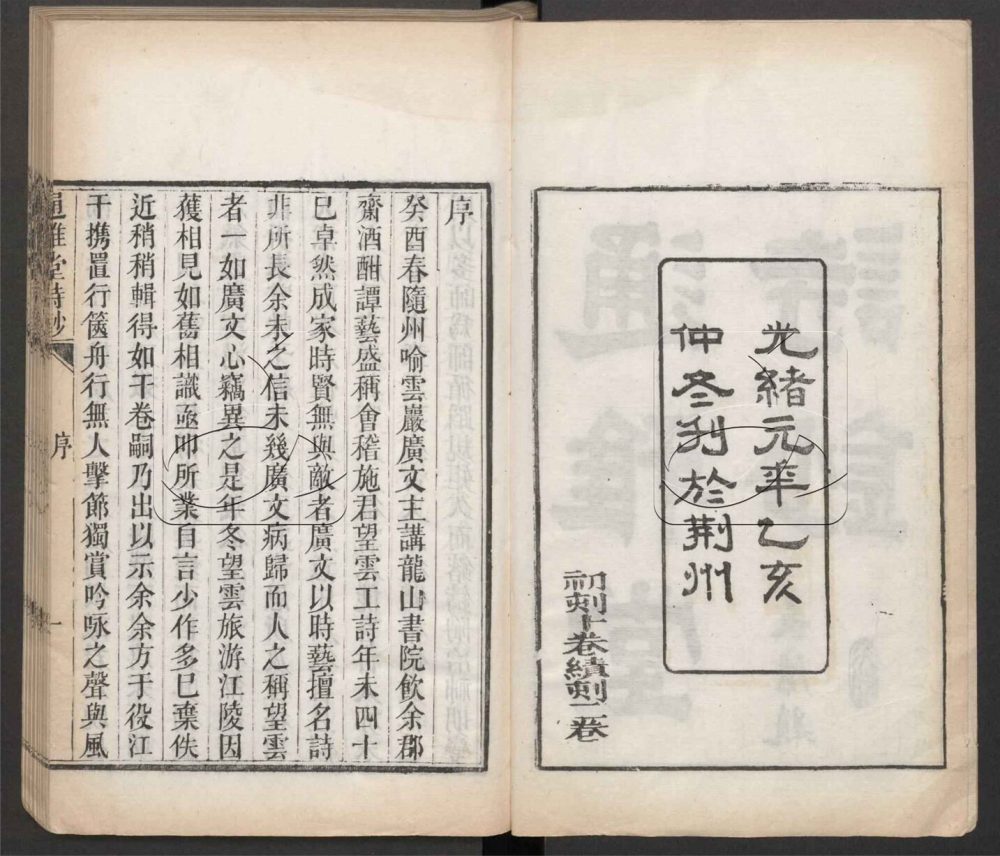 光緒元年乙亥
仲冬刊於荆州
初刻十卷續刻一卷
序
癸酉春隨州喻雲巖廣文主講龍山書院飲余郡
齋酒酣譚藝盛稱會稽施君望雲工詩年未四十
已卓然成家時賢無與敵者廣文以時藝擅名詩
非所長余未之信未幾廣文病歸而人之稱望雲
者一如廣文心竊異之是年冬望雲旅游江陵因
獲相見如舊相識亟叩所業自言少作多已棄佚
近稍稍輯得如干卷嗣乃出以示余余方于役江
干携置行篋舟行無人擊節獨賞吟咏之聲與風
通雅堂詩鈔
序
一